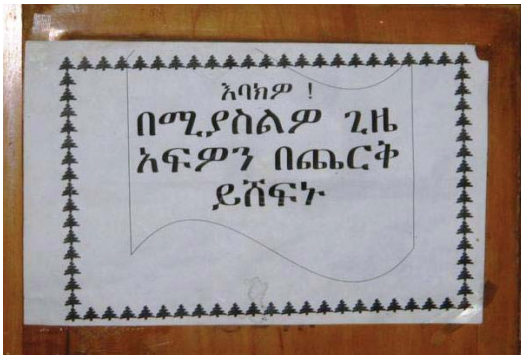 እባክዎ !
በሚያስልዎ ጊዜ
አፍዎን በጨርቅ
ይሸፍኑ